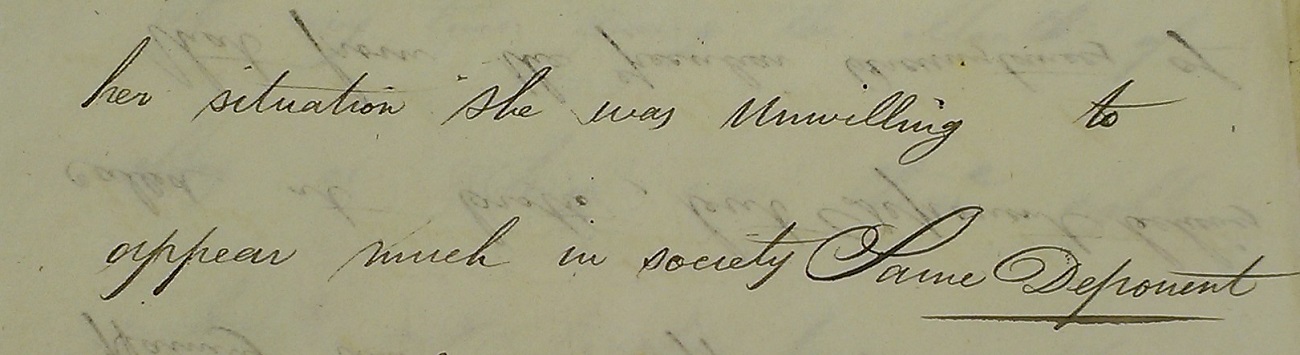 her situation she was unwilling to
appear much in society Same Deponent